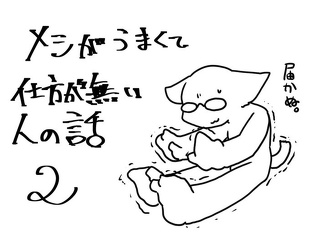 メシがうまくて
仕方が無い
人の話
2
届かぬ。